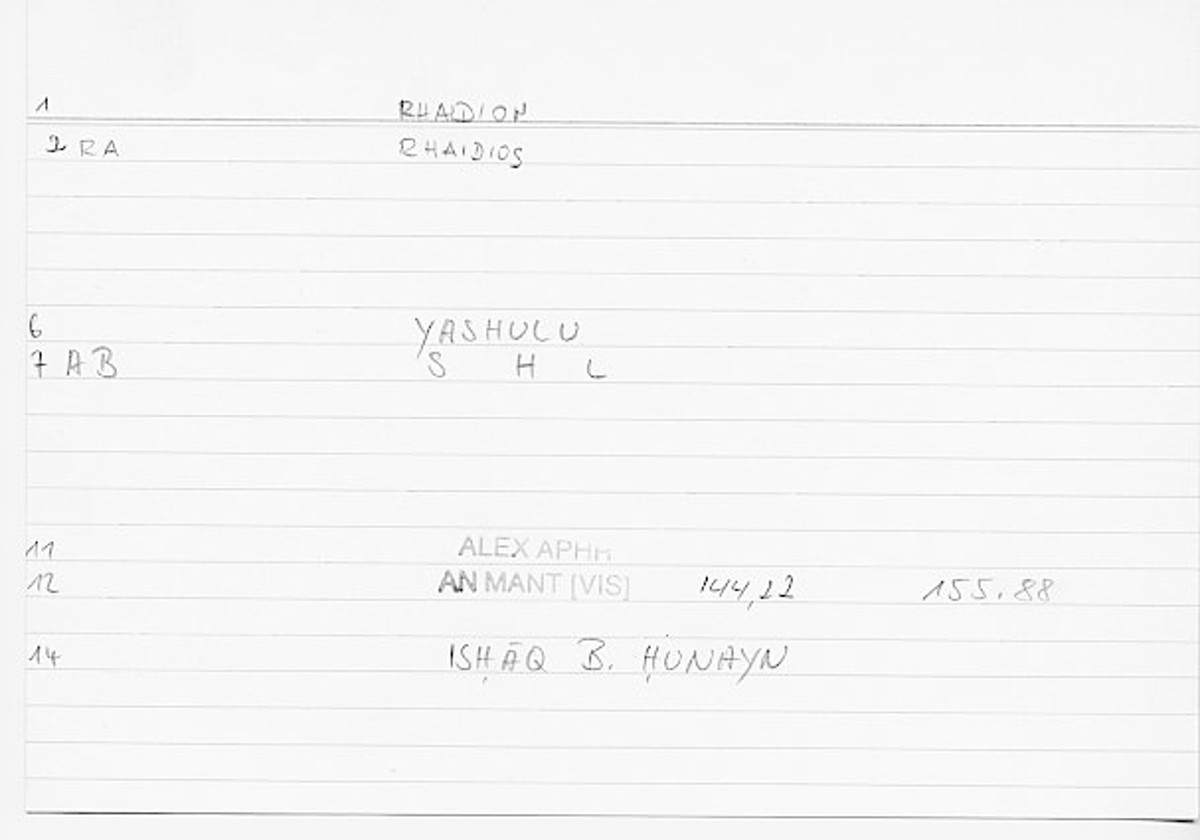 1 RHAIDION
2 RA RHAIDIOS
6 YASHULU
7 AB S H L
11 ALEX APHR
12 AN MANT [VIS] 144,22 155.88
14 ISḤĀQ B. ḤUNAYN